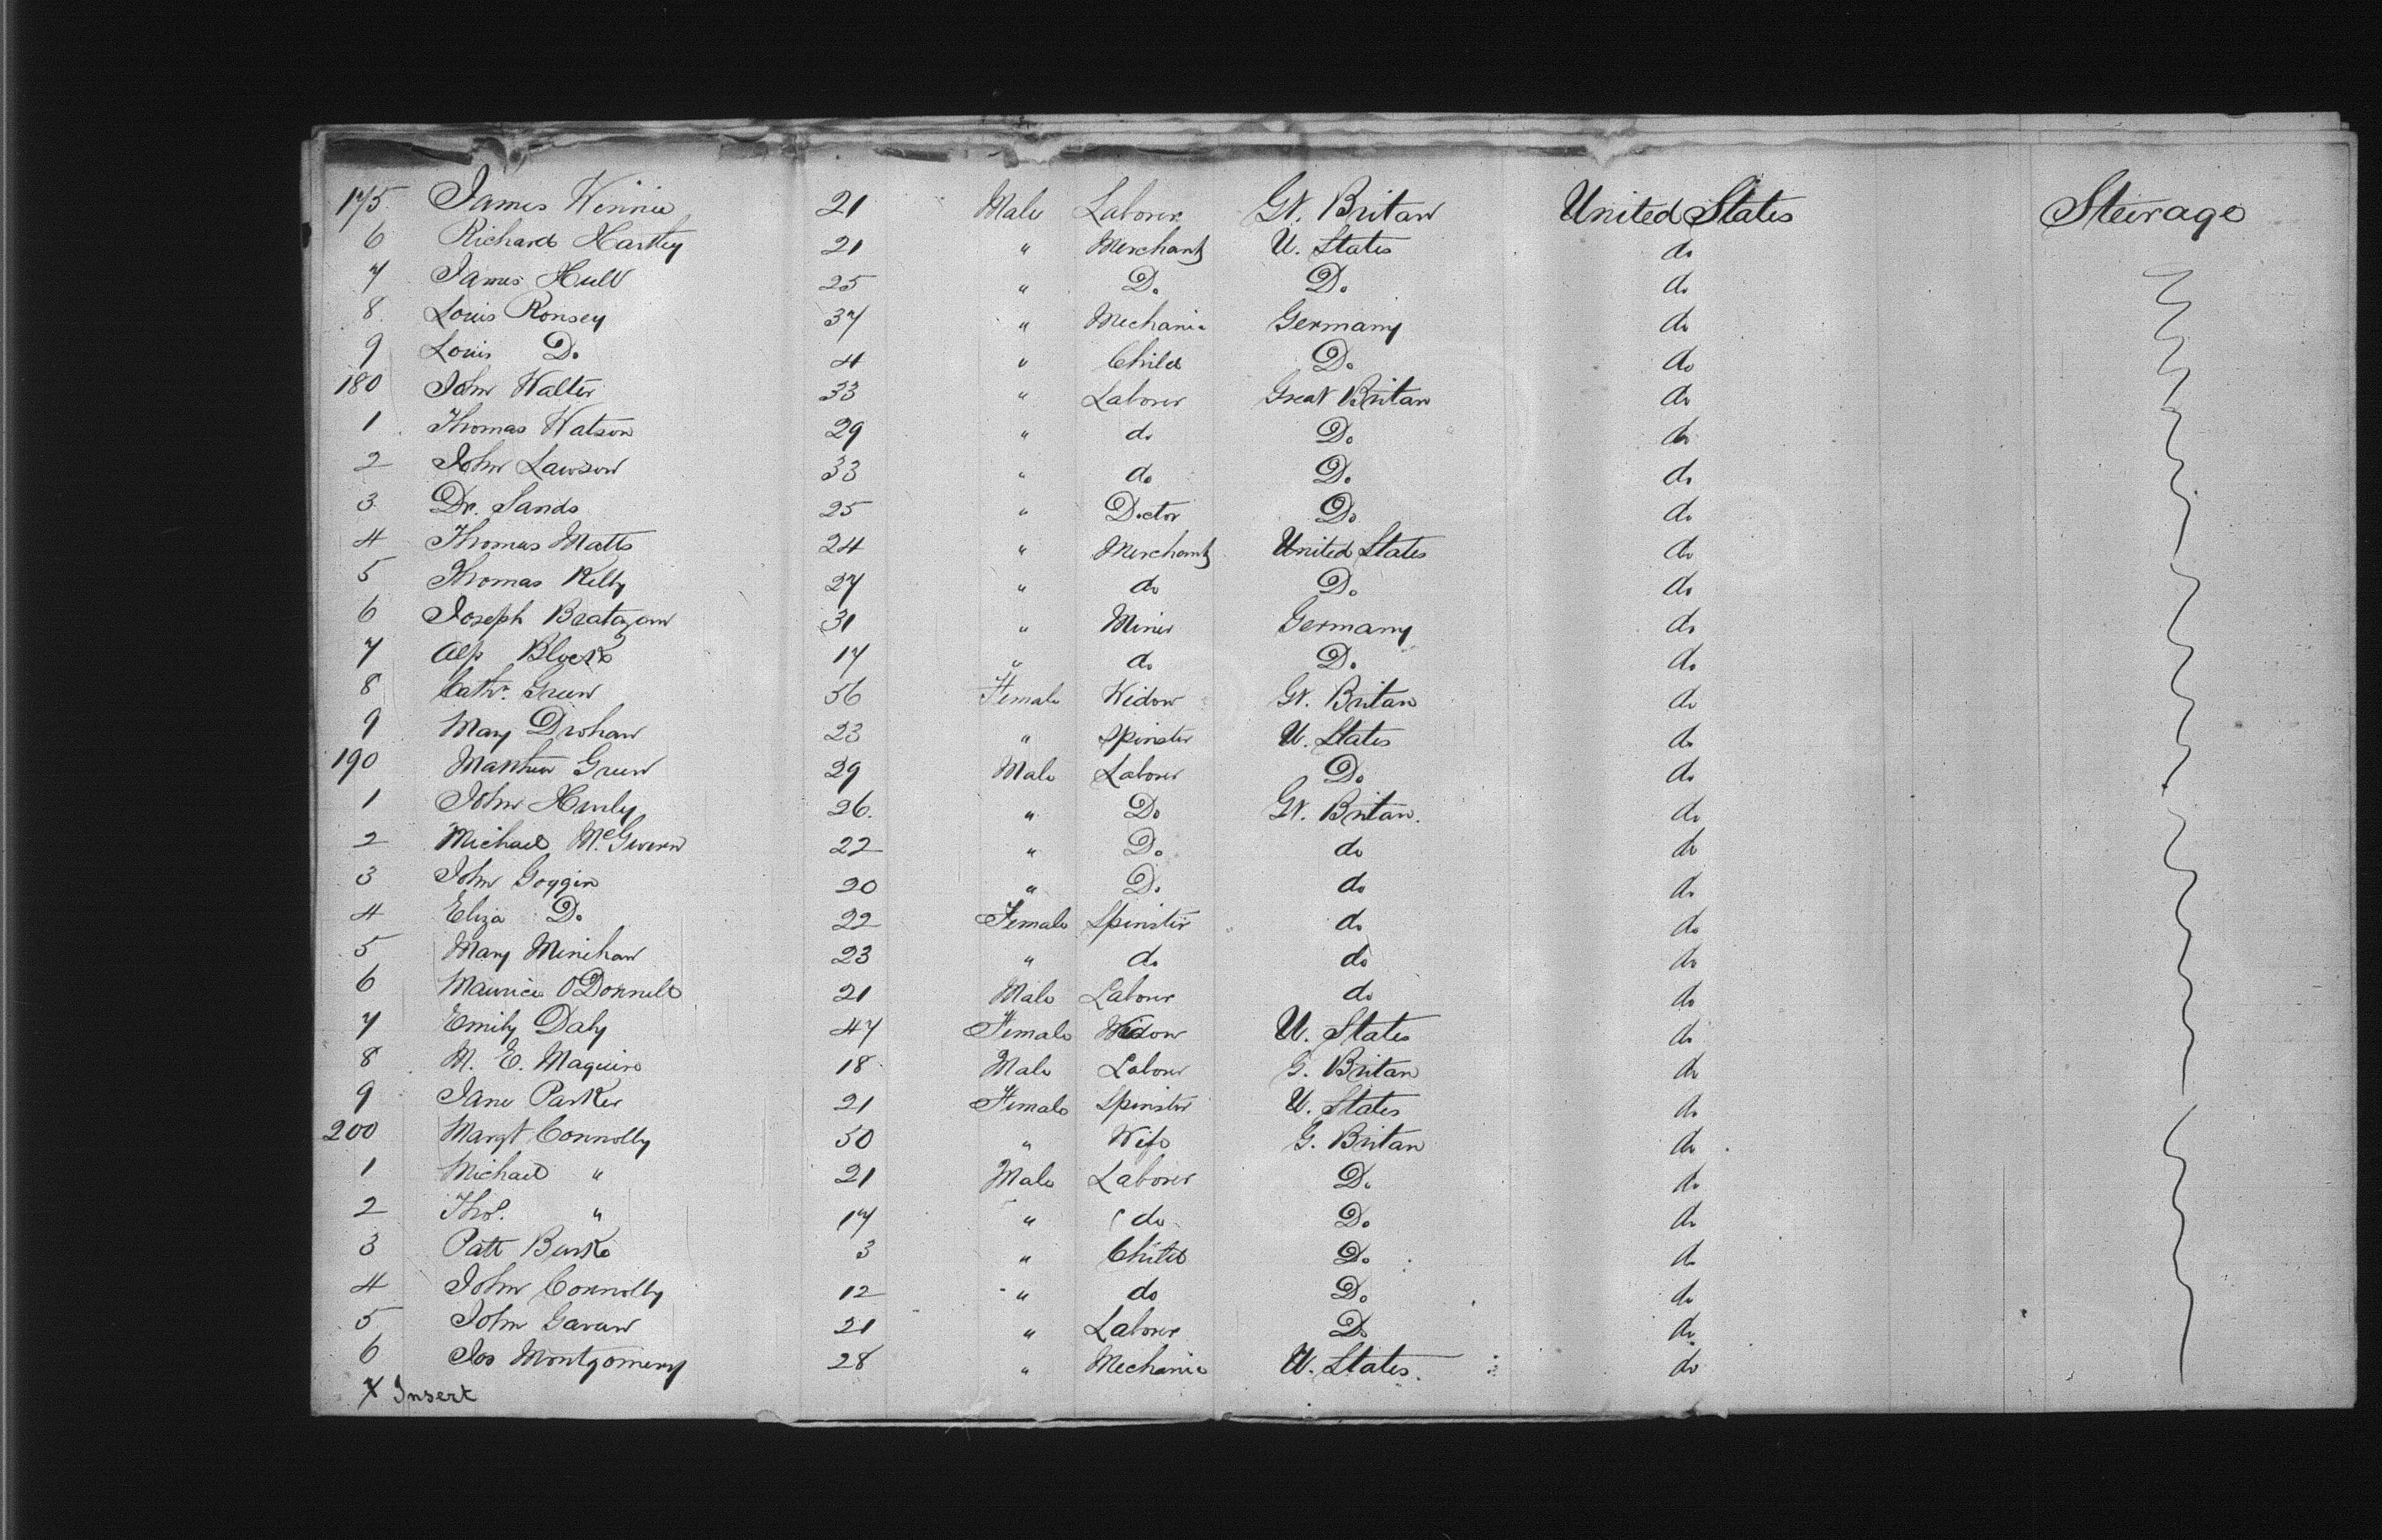 175 James Winnie 21 Male Laborer Gt. Britan United States Steirage
6 Richard Hartley 21 " Merchant U. States do
7 James Hull 25 " Do Do do
8 Louis Ronsey 37 " Mechanic Germany do
9 Louis Do 4 " Child Do do
180 John Walter 33 " Laborer Great Britan do
1 Thomas Watson 29 " do Do do
2 John Lawson 33 " do Do do
3 Dr. Sands 25 " Doctor Do do
4 Thomas Matts 24 " Merchant United States do
5 Thomas Kelly 27 " do Do do
6 Joseph 31 " Miner Germany do
7 Block 17 " do Do do
8 Cathr. Green 56 Female Widow Gt. Britan do
9 Mary Drohan 23 " Spinster U. States do
190 Matthew Green 29 Male Laborer Do do
1 John Hurly 26. " Do Gt. Britan. do
2 Michael McGivern 22 " Do do do
3 John Goggin 20 " Do do do
4 Eliza Do 22 Female Spinster do do
5 Mary Minihan 23 " do do do
6 Maurice O'Donnell 21 Male Laborer do do
7 Emily Daly 47 Female Widow U. States do
8 M. E. Maguire 18 Male Laborer G. Britan do
9 Jane Parker 21 Female Spinster U. States do
200 Margt Connolly 50 " Wife G. Britan do
1 Michael " 21 Male Laborer Do do
2 Thos. " 17 " do Do do
3 Patt Burke 3 " Child Do do
4 John Connolly 12 " do Do do
5 John Gavan 21 " Laborer Do do
6 Jos Montgomery 28 " Mechanic U. States. do
7 Insert